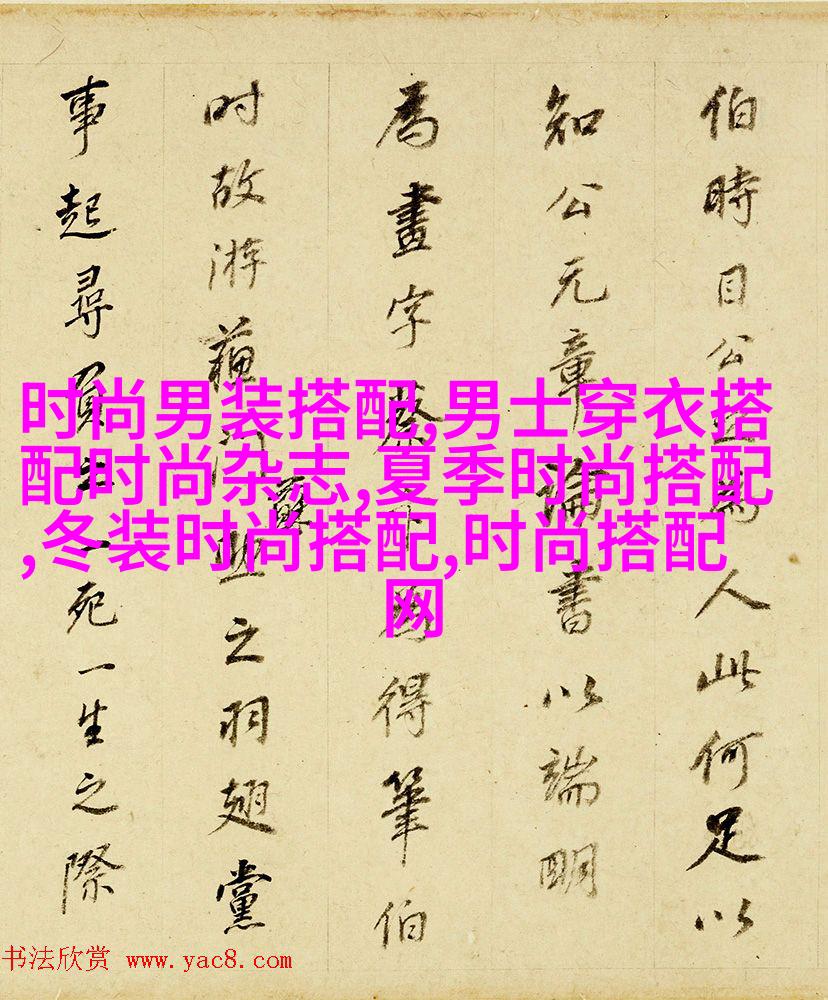 伯時目公為人此何足以
知公元章論書以端明
為畫字蔡得筆伯
时故游蘓之羽翅黨
事起尋一死一生之際
时尚男装搭配,男士穿衣搭
配时尚杂志,夏季时尚搭配
,冬装时尚搭配,时尚搭配
网
书法欣赏 www.yac8.com